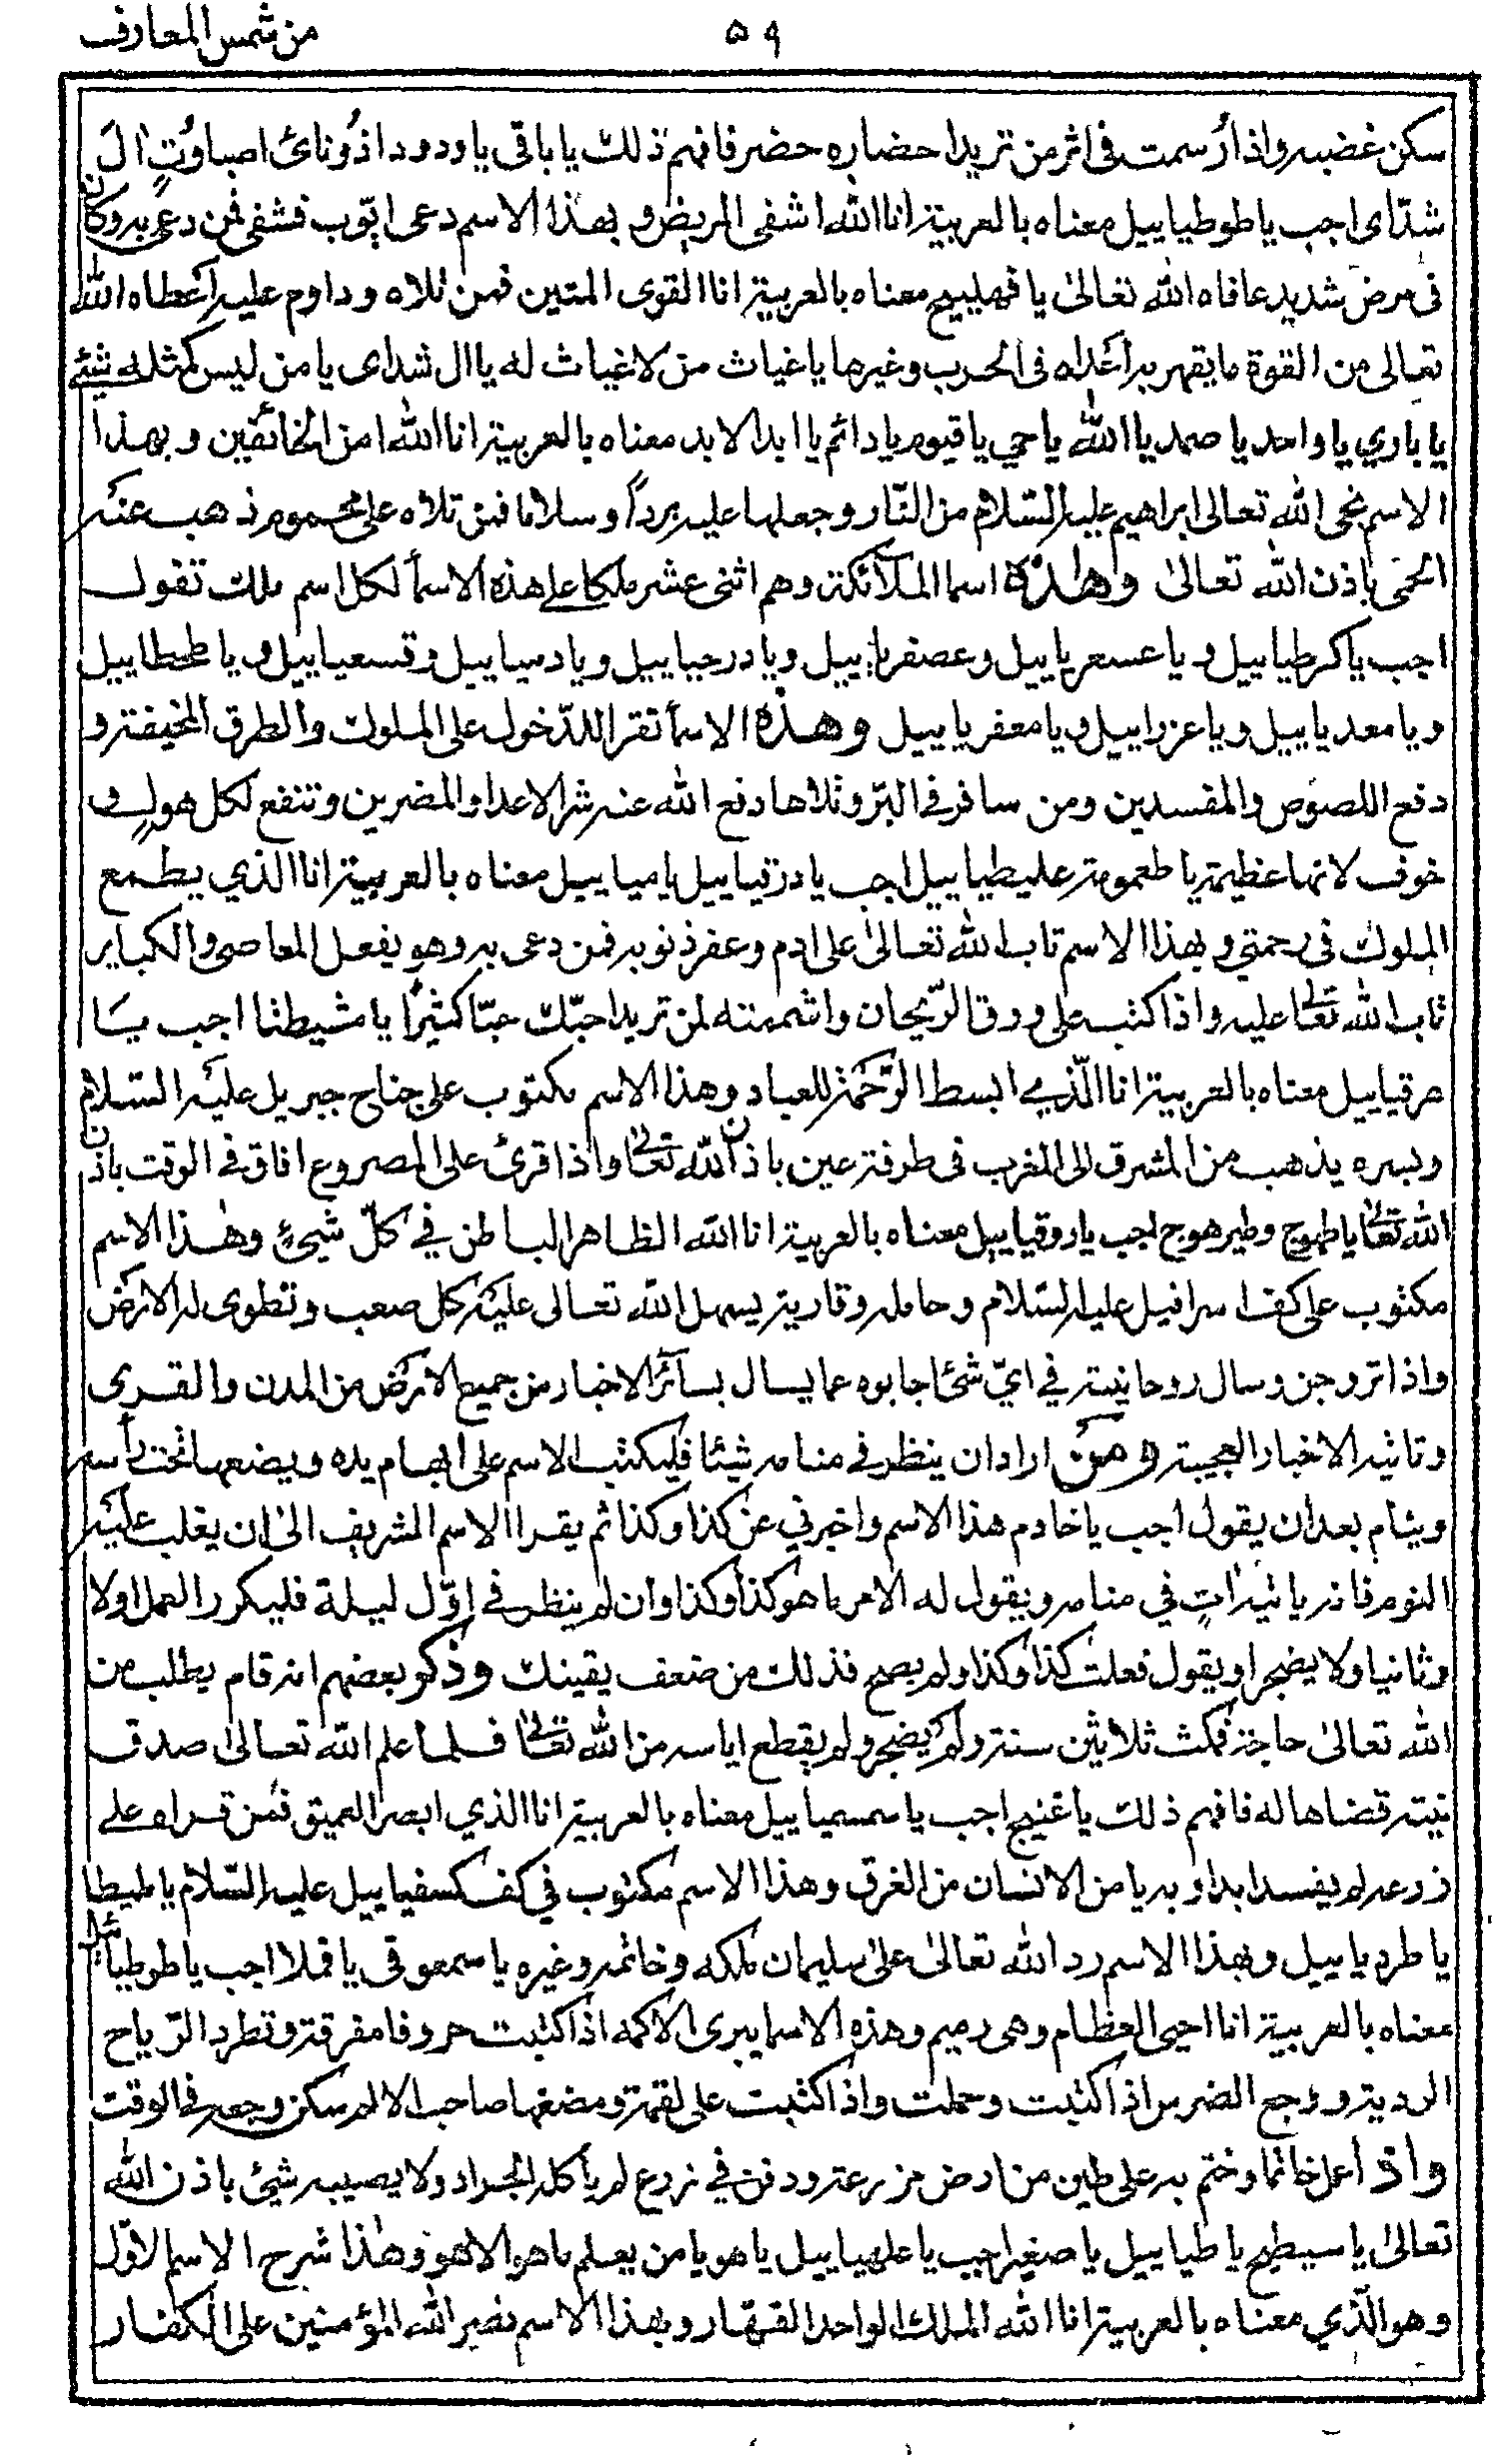 من شمس المعارف
٥٩
سكن غضبه واذا رسمت فى اثر من تريد احضاره حضر فافهم ذلك يا باقى يا ودود اذونائ اصباوت ال
شداى اجب يا طوطياييل معناه بالعربية انا الله اشفى المريض وبهذا الاسم دعى ايوب فشفى فمن دعى به وكان
فى مرض شديد عافاه الله تعالى يا فهليبج معناه بالعربية انا القوى المتين فمن تلاه وداوم عليه اعطاه الله
تعالى من القوة ما يقهر به اعداه فى الحرب وغيرها يا غياث من لا غياث له يا ال شداى يا من ليس كمثله شيئ
يا باري يا واحد يا صمد يا الله يا حي يا قيوم يا دائم يا ابد الابد معناه بالعربية انا الله امن الخائفين وبهذا
الاسم نجى الله تعالى ابراهيم عليه السلام من النار وجعلها عليه بردا وسلاما فمن تلاه على محموم ذهب عنه
الحمى باذن الله تعالى وهذه اسما الملائكة وهم اثنى عشر ملكا على هذه الاسما لكل اسم ملك تقول
اجب يا كرطياييل ويا عسعرياييل وعصفرياييل ويا درحياييل ويا دسياييل وقسعياييل ويا طحطاييل
ويا معدياييل ويا عزراييل ويا معفرياييل وهذه الاسما تقرا للدخول على الملوك والطرق المخيفة و
دفع اللصوص والمفسدين ومن سافر في البر وتلاها دفع الله عنه شر الاعدا والمضرين وتنفع لكل هول و
خوف لانها عظيمة يا طعمومة عليطياييل اجب يا درقياييل يا مياييل معناه بالعربية انا الذي يطمع
الملوك فى رحمتي وبهذا الاسم تاب الله تعالى على ادم وغفر ذنوبه فمن دعى به وهو يفعل المعاصى والكباير
تاب الله تعالى عليه واذا كتب على ورق الريحان واشممته لمن تريد احبك حبا كثيرا يا مشيطنا اجب يا
صرقياييل معناه بالعربية انا الذي ابسط الرحمة للعباد وهذا الاسم مكتوب على جناح جبريل عليه السلام
وبسره يذهب من المشرق الى المغرب فى طرفة عين باذن الله تعالى واذا قرئ على المصروع افاق في الوقت باذن
الله تعالى يا طهوج وطيرهوج اجب يا روقياييل معناه بالعربية انا الله الظاهر الباطن في كل شيئ وهذا الاسم
مكتوب على كف اسرافيل عليه السلام وحامله وقاريه يسهل الله تعالى عليه كل صعب وتطوى له الارض
واذا تروحن وسال روحانيته في اي شئ اجابوه عما يسال بسائر الاخبار من جميع الارض من المدن والقرى
وتاتيه الاخبار العجيبة ومن اراد ان ينظر في منامه شيئا فليكتب الاسم على ابهام يده ويضعها تحت رأسه
وينام بعد ان يقول اجب يا خادم هذا الاسم واخبرني عن كذا وكذا ثم يقرا الاسم الشريف الى ان يغلب عليه
النوم فانه ياتيه ات في منامه ويقول له الامر ما هو كذا وكذا وان لم ينظر في اول ليلة فليكرر العمل اولا
وثانيا ولا يضجر او يقول فعلت كذا وكذا ولم يصح فذلك من ضعف يقينك وذكر بعضهم انه قام يطلب من
الله تعالى حاجة فمكث ثلاثين سنة ولم يضجر ولم يقطع اياسه من الله تعالى فلما علم الله تعالى صدق
نيته قضاها له فافهم ذلك يا غنيج اجب يا سمسمياييل معناه بالعربية انا الذي ابصر العميق فمن قراه على
زرعه لم يفسد ابدا وبه يامن الانسان من الغرق وهذا الاسم مكتوب في كف كسفياييل عليه السلام يا طيطا
يا طردياييل وبهذا الاسم رد الله تعالى على سليمان ملكه وخاتمه وغيره يا سمعوقى يا قملا اجب يا طوطيائيل
معناه بالعربية انا احيى العظام وهى رميم وهذه الاسما يبرى الاكمه اذا كتبت حروفا مفرقة وتطرد الرياح
الردية ووجع الضرس اذا كتبت وحملت واذا كتبت على لقمة ومضغها صاحب الالم سكن وجعه في الوقت
واذا عمل خاتما وختم به على طين من ارض مزرعة ودفن في زرع لم يأكله الجراد ولا يصيبه شيئ باذن الله
تعالى يا سيطيح يا طياييل يا صغير اجب يا علهياييل يا هو يا من يعلم ما هو الا هو وهذا شرح الاسم الاول
وهو الذي معناه بالعربية انا الله الملك الواحد القهار وبهذا الاسم نصر الله المؤمنين على الكفار